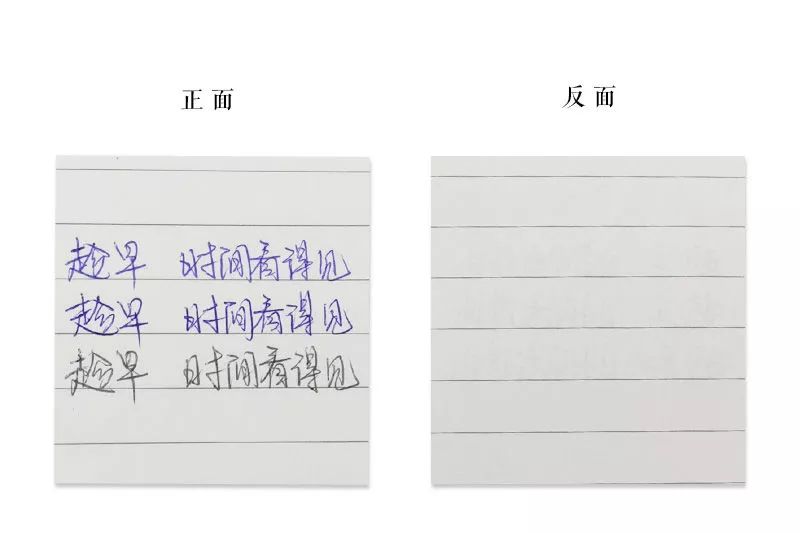 正面
反面
趁早 时间看得见
趁早 时间看得见
趁早 时间看得见